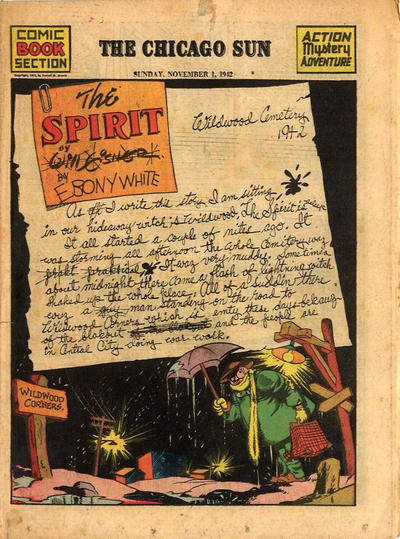 COMIC
BOOK
SECTION
THE CHICAGO SUN
ACTION
Mystery
ADVENTURE
SUNDAY, NOVEMBER 1, 1942
The
SPIRIT
BY
WILL EISNER
BY
EBONY WHITE
Wildwood Cemetery
1942
As I write this story I am sitting
in our hideaway witch is Wildwood, The Spirit is
It all started a couple of nites ago. It
was storming all afternoon the whole cemitery waz
It waz very muddy. Sometime
about midnight there came a flash of lightning witch
shaked up the whole place. All of a suddin there
wuz a man standing on the road to
Wildwood Corners which is emty these days becauz
of the blakout and the people are
in Central City doing war work.
WILDWOOD
CORNERS.